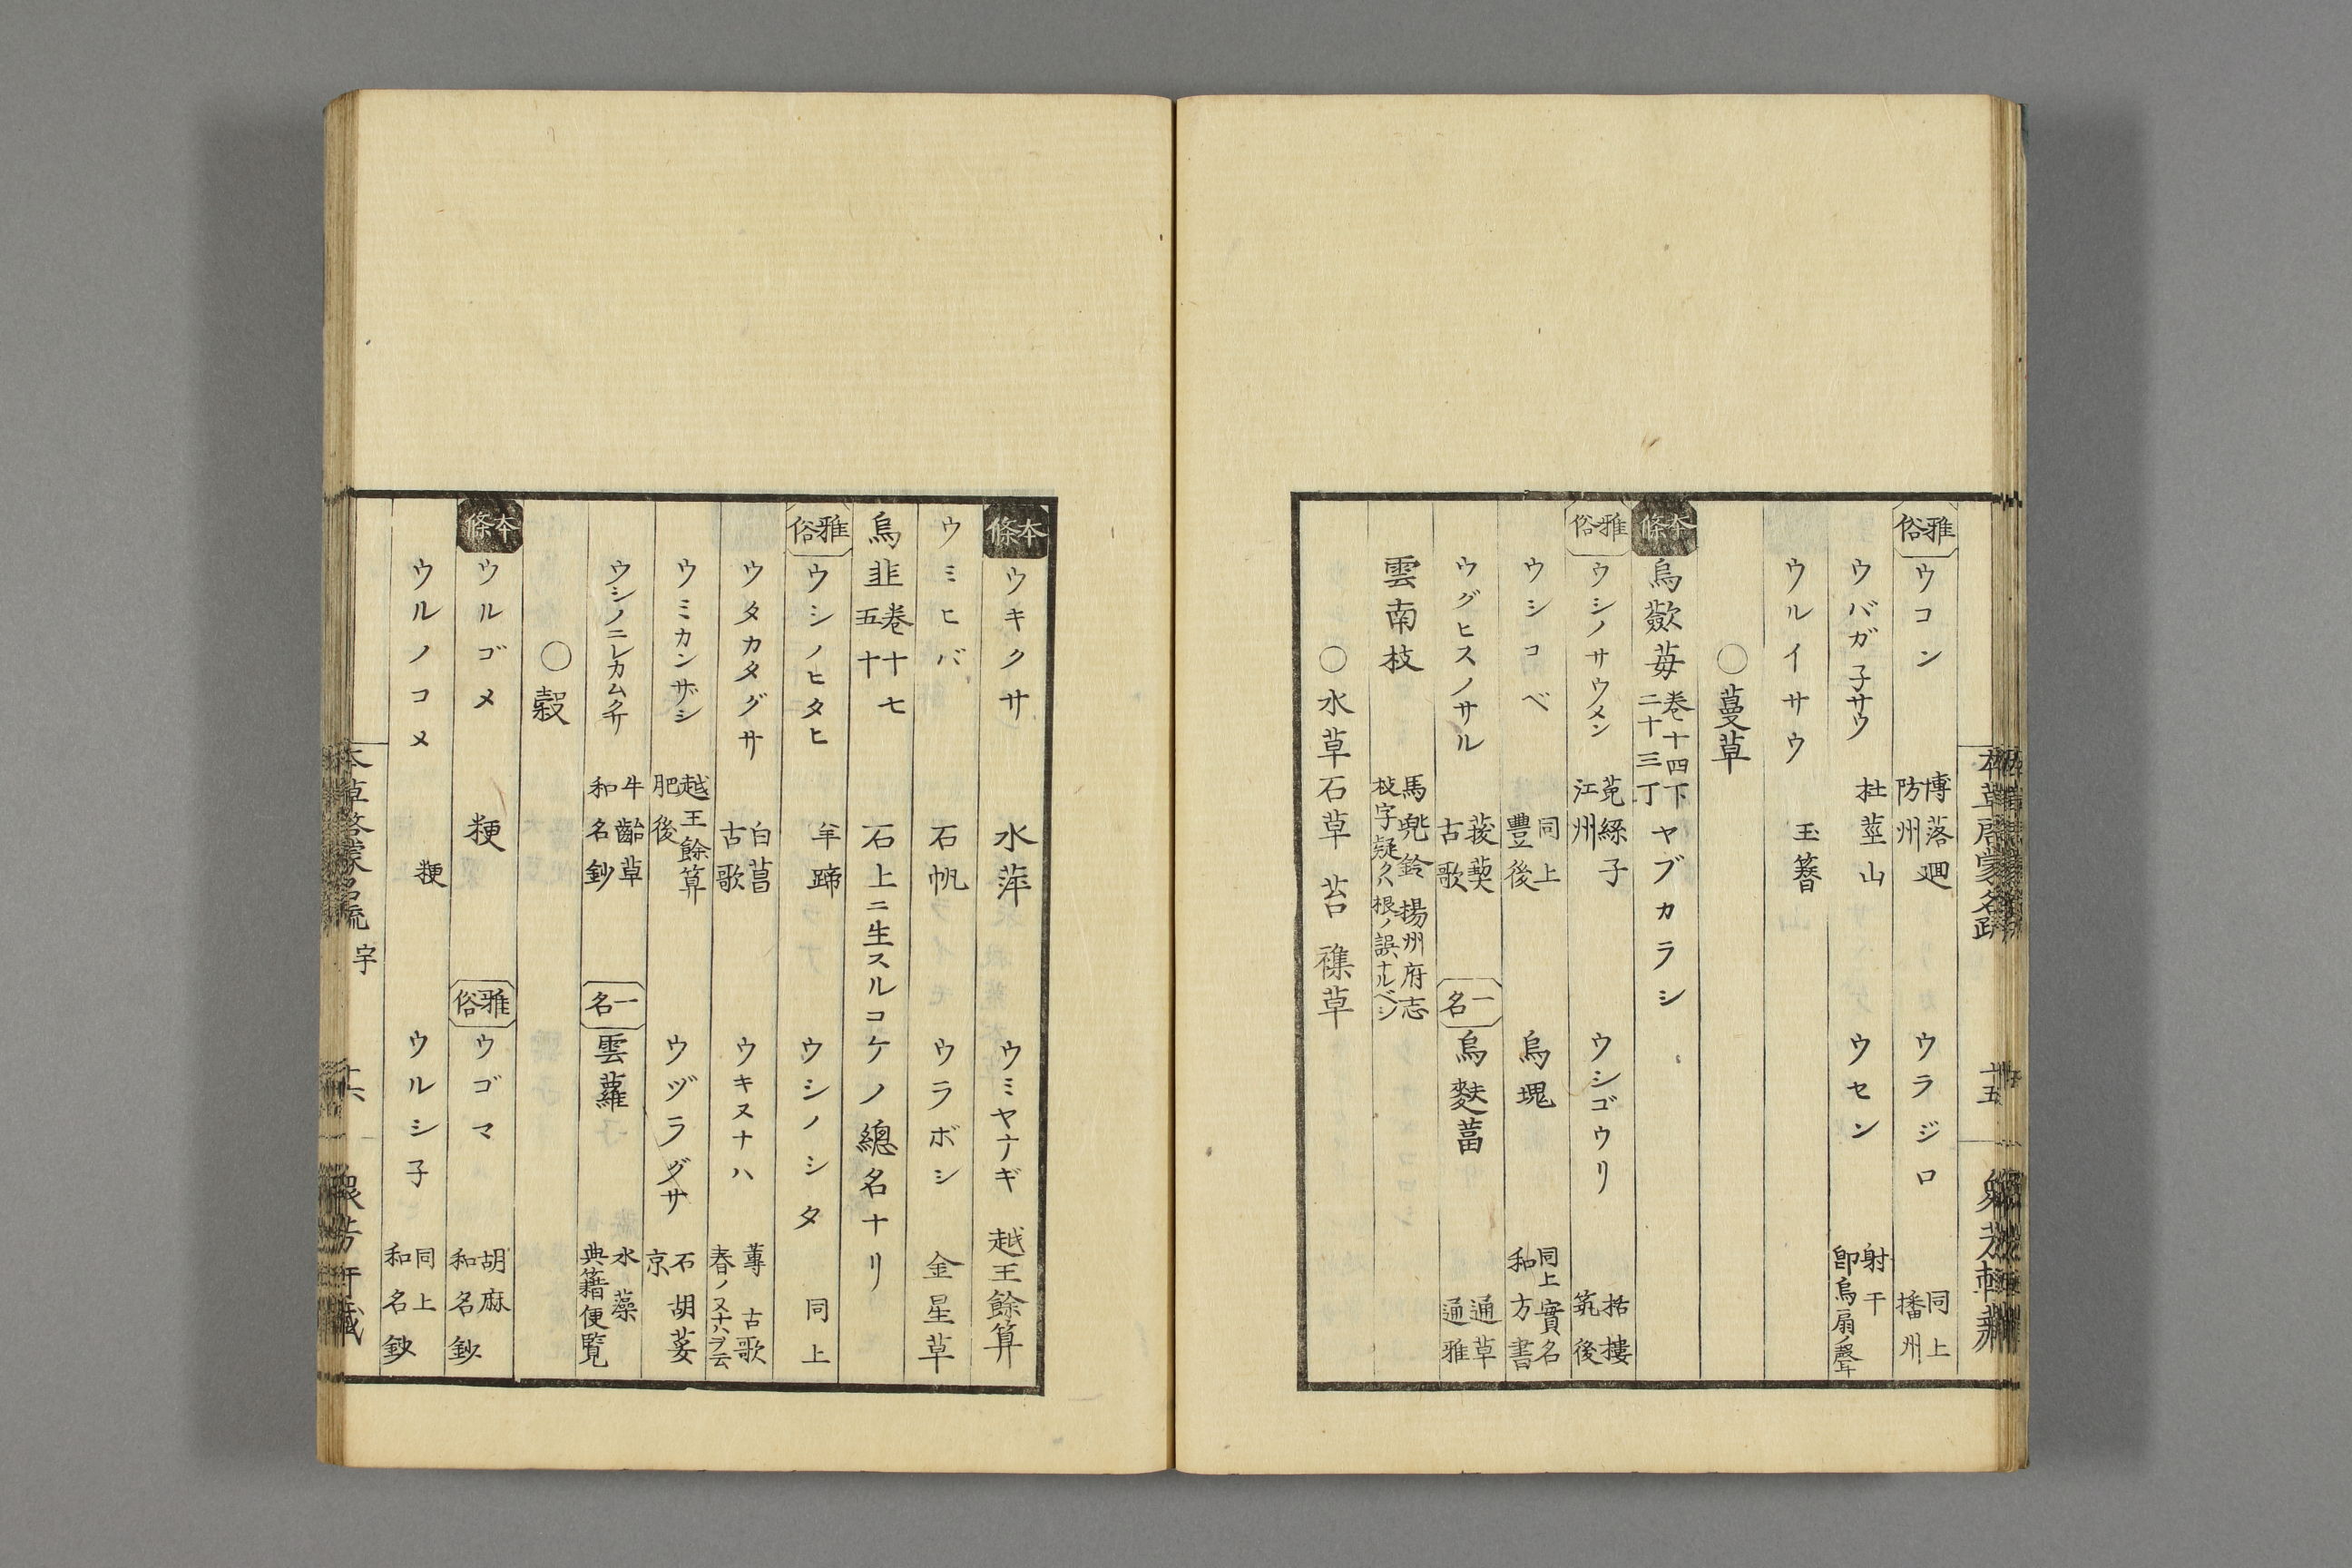 雅俗 ウコン 博落廻 防州 ウラジロ 同上 播州
ウバガ子サウ 杜莖山 ウセン 射干 即烏扇ノ聲
ウルイサウ 玉簪
〇蔓草
本條 烏蘞苺 卷十四下 二十三丁 ヤブカラシ
雅俗 ウシノサウメン 菟絲子 江州 ウシゴウリ 括樓 筑後
ウシコベ 同上 豐後 烏塊 同上實名 和方書
ウグヒスノサル 菝葜 古歌 一名 烏麩葍 通草 通雅
雲南枝 馬兜鈴 揚州府志 枝字疑クハ根ノ誤ナルベシ
〇水草 石草 苔 襍草
本條 ウキクサ 水萍 ウミヤナギ 越王餘算
ウミヒバ 石帆 ウラボシ 金星草
烏韭 卷十七 五十 石上ニ生スルコケノ總名ナリ
雅俗 ウシノヒタヒ 羊蹄 ウシノシタ 同上
ウタカタグサ 白菖 古歌 ウキヌナハ 蓴 古歌 春ノヌナハヲ云
ウミカンザシ 越王餘算 肥後 ウヅラグサ 石胡荽 京
ウシノニレカムクサ 牛齝草 和名鈔 一名 雲蘿 水藻 典籍便覽
〇穀
本條 ウルゴメ 粳 雅俗 ウゴマ 胡麻 和名鈔
ウルノコメ 粳 ウルシ子 同上 和名鈔
本草啓蒙名疏 宇